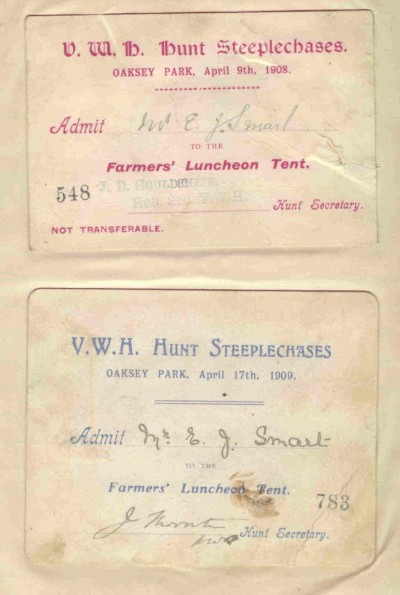 V. W. H. Hunt Steeplechases.
OAKSEY PARK, April 9th, 1908.
Admit Mr E J Smart
TO THE
Farmers' Luncheon Tent.
548
Hunt Secretary.
NOT TRANSFERABLE.
V.W.H. HUNT STEEPLECHASES
OAKSEY PARK, April 17th, 1909.
Admit Mr. E. J. Smart
TO THE
Farmers' Luncheon Tent.
783
Hunt Secretary.